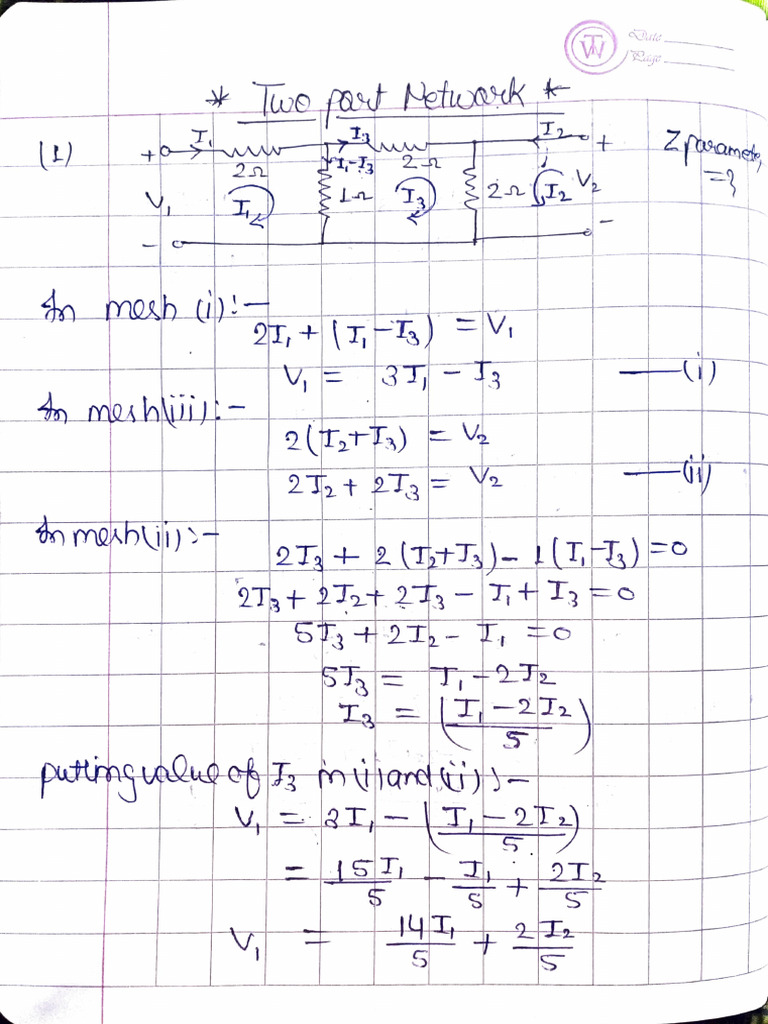 TW Date
Page
* Two part Network *
(1) + I₁ 2Ω I₃ 2Ω I₂ + Z parameter
I₁-I₃ 1Ω 2Ω =?
V₁ I₁ I₃ I₂ V₂
- -
In mesh (i):-
2I₁ + (I₁-I₃) = V₁
V₁ = 3I₁ - I₃ —(i)
In mesh(iii):-
2(I₂+I₃) = V₂
2I₂ + 2I₃ = V₂ —(ii)
In mesh(ii):-
2I₃ + 2(I₂+I₃) - 1(I₁-I₃) = 0
2I₃ + 2I₂ + 2I₃ - I₁ + I₃ = 0
5I₃ + 2I₂ - I₁ = 0
5I₃ = I₁ - 2I₂
I₃ = (I₁ - 2I₂ / 5)
putting value of I₃ in (i) and (ii):-
V₁ = 3I₁ - (I₁ - 2I₂ / 5)
= 15I₁/5 - I₁/5 + 2I₂/5
V₁ = 14I₁/5 + 2I₂/5